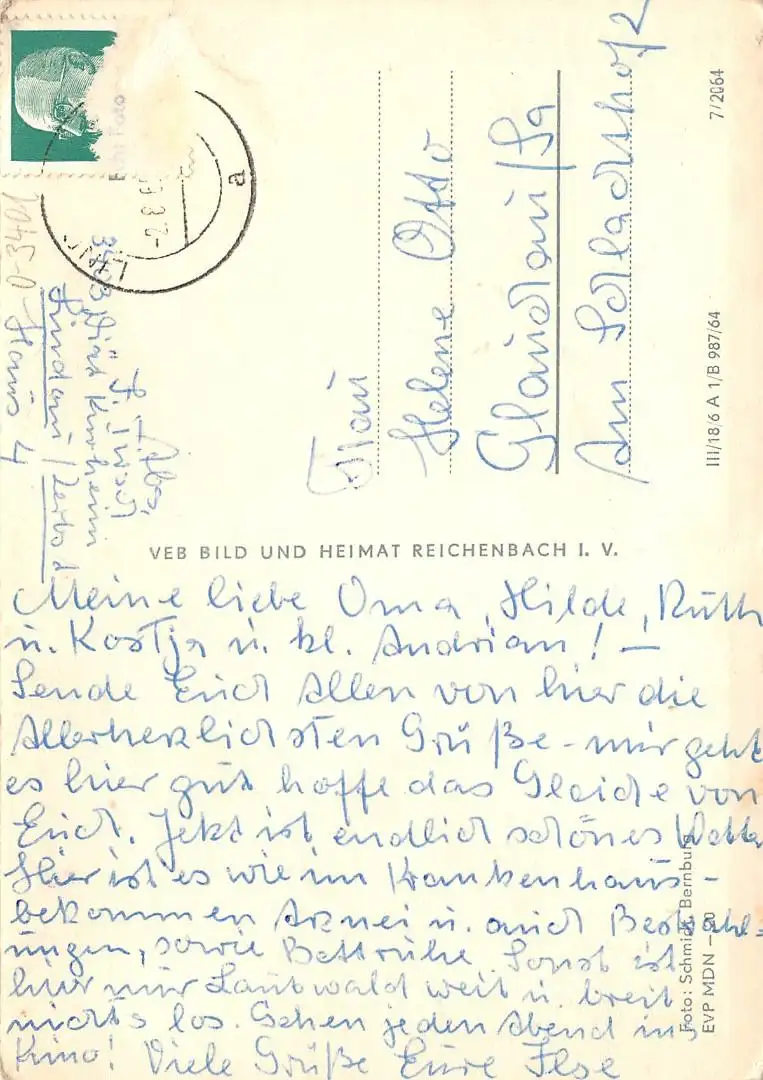 Meine liebe Oma, Hilde, Ruth
u. Kostja u. kl. Andrian! —
Sende Euch Allen von hier die
Allerherzlichsten Grüße - mir geht
es hier gut hoffe das Gleiche von
Euch. Jetzt ist endlich schönes Wetter
Hier ist es wie im Krankenhaus -
bekommen Arznei u. auch Bestrahl=
ungen, sowie Bettruhe. Sonst ist
hier nur Laubwald weit u. breit
nichts los. Gehen jeden Abend ins
Kino! Viele Grüße Eure Ilse
VEB BILD UND HEIMAT REICHENBACH I. V.
Frau
Helene Otto
Glauchau/Sa
Am Schlachthof 2
7/2064
III/18/6 A 1/B 987/64
Foto: Schmidt, Bernburg
EVP MDN –,20
3403
Kurheim
Lindau/Zerbst
Haus 4
0-3401
Echt Foto
-2.8.65
a